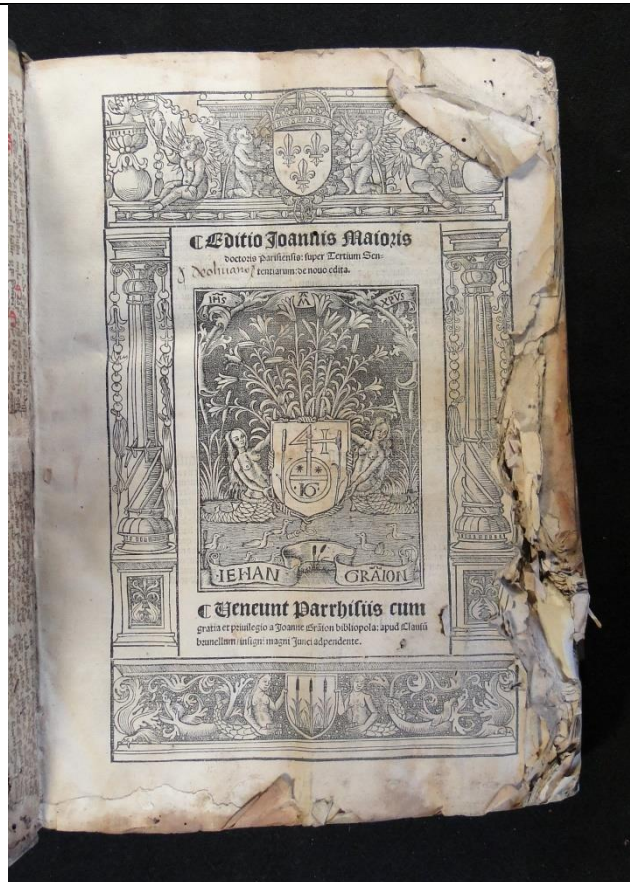 ¶Editio Joannis Maioris
doctoris Parisiensis: super Tertium Sen-
tentiarum: de nouo edita.
IHS XPVS
IG
IEHAN GRÃION
¶Ueneunt Parrhisiis cum
gratia et priuilegio a Joanne Grãion bibliopola: apud Clausũ
brunellum/insigni magni Junci adpendente.